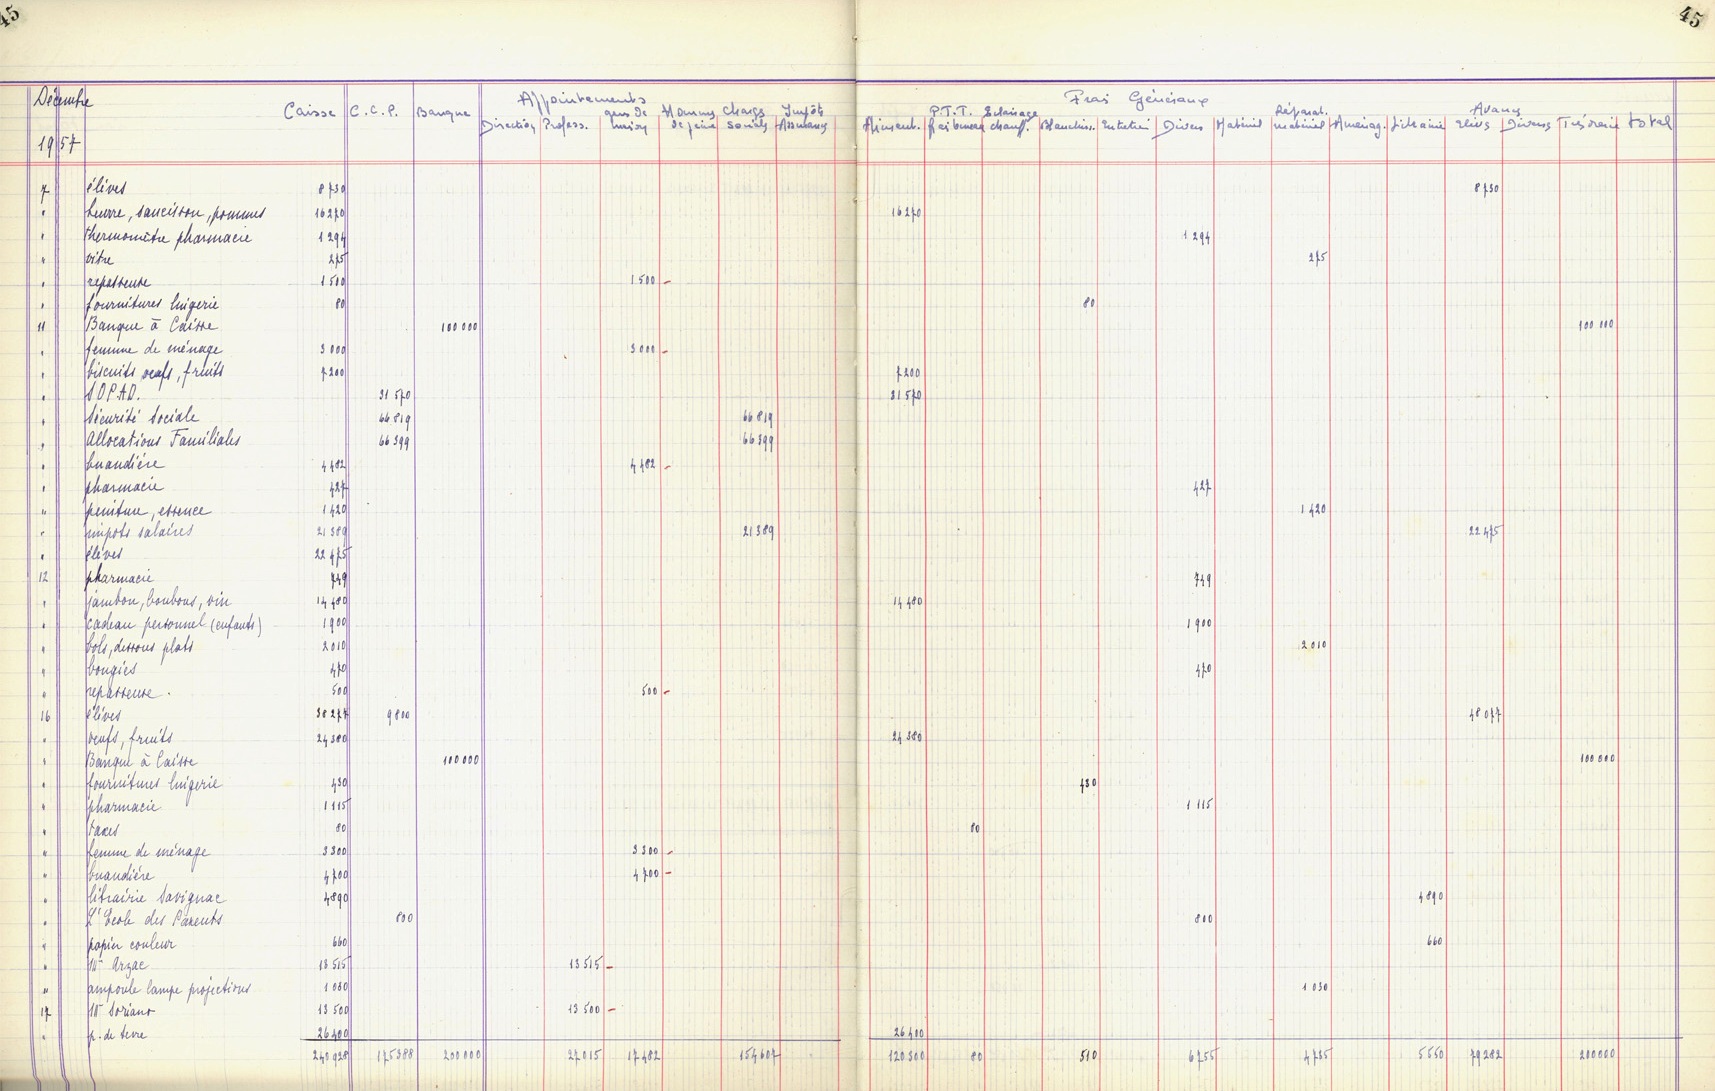 45 45
Décembre
Appointements Frais Généraux
Caisse C.C.P. Banque gens de Hommes Charges Impôts P.T.T. Eclairage Réparat. Avances
Direction Profess. maison de peine Sociales Assurances Aliment. frais bureau chauff. Blanchiss. Entretien Divers Matériel matériel Aménag. Librairie élèves Divers Trésorerie total
1957
7 élèves 8730 8730
" beurre, saucisson, pommes 16270 16270
" thermomètre pharmacie 1294 1294
" vitre 275 275
" repasseuse 1500 1500
" fournitures lingerie 80 80
11 Banque à Caisse 100000 100000
" femme de ménage 3000 3000
" biscuits oeufs, fruits 7200 7200
" S O P A D. 31570 31570
" Sécurité Sociale 66819 66819
" Allocations Familiales 66399 66399
" buandière 4482 4482
" pharmacie 427 427
" peinture, essence 1420 1420
" impots salaires 21389 21389 22475
" élèves 22475
12 pharmacie 749 749
" jambon, bonbons, vin 14480 14480
" cadeau personnel (enfants) 1900 1900
" bols, dessous plats 2010 2010
" bougies 470 470
" repasseuse. 500 500
16 élèves 38277 9800 48077
" oeufs, fruits 24380 24380
" Banque à Caisse 100000 100000
" fournitures lingerie 430 430
" pharmacie 1115 1115
" taxes 80 80
" femme de ménage 3300 3300
" buandière 4700 4700
" librairie Savignac 4890 4890
" L'Ecole des Parents 800 800
" papier couleur 660 660
" Mr Arzac 13515 13515
" ampoule lampe projections 1030 1030
17 Mr Soriano 13500 13500
" p. de terre 26400 26400
240928 175388 200000 27015 17482 154607 120300 80 510 6755 4735 5550 79282 200000